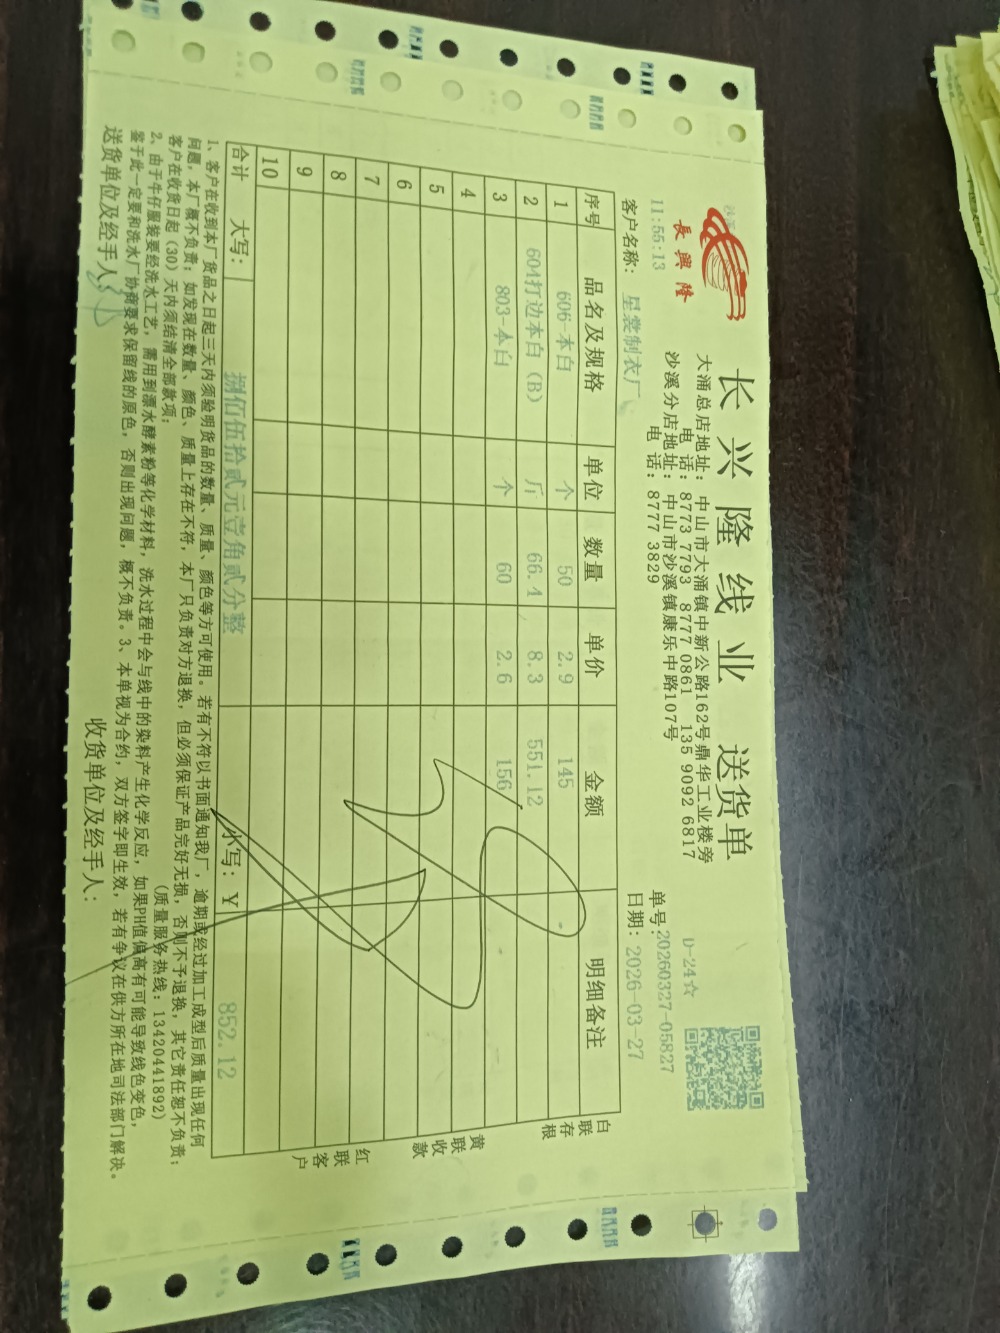 长兴隆线业 送货单
長興隆
大涌总店地址：中山市大涌镇中新公路162号鼎华工业楼旁
电 话：8773 7793 8777 0861 135 9092 6817
沙溪分店地址：中山市沙溪镇康乐中路107号
电 话：8777 3829
D-24☆
单号：20260327-05827
日期：2026-03-27
11:55:13
客户名称：星裳制衣厂
序号 品名及规格 单位 数量 单价 金额 明细备注
1 606-本白 个 50 2.9 145
2 604打边本白（B） 斤 66.4 8.3 551.12
3 803-本白 个 60 2.6 156
4
5
6
7
8
9
10
合计 大写：捌佰伍拾贰元壹角贰分整 小写：Y 852.12
白联存根
黄联收款
红联客户
1、客户在收到本厂货品之日起三天内须验明货品的数量、质量、颜色等方可使用。若有不符以书面通知我厂，逾期或经过加工成型后质量出现任何
问题，本厂概不负责；如发现在数量、颜色、质量上存在不符，本厂只负责对方退换，但必须保证产品完好无损，否则不予退换，其它责任恕不负责；
客户在收货日起（30）天内须结清全部款项；（质量服务热线：13420441892）
2、由于牛仔服装要经洗水工艺，需用到源水酵素粉等化学材料，洗水过程中会与线中的染料产生化学反应，如果PH值偏高有可能导致线色变色，
鉴于此一定要和洗水厂协商要求保留线的原色，否则出现问题，概不负责。3、本单视为合约，双方签字即生效，若有争议在供方所在地司法部门解决。
送货单位及经手人：
收货单位及经手人：